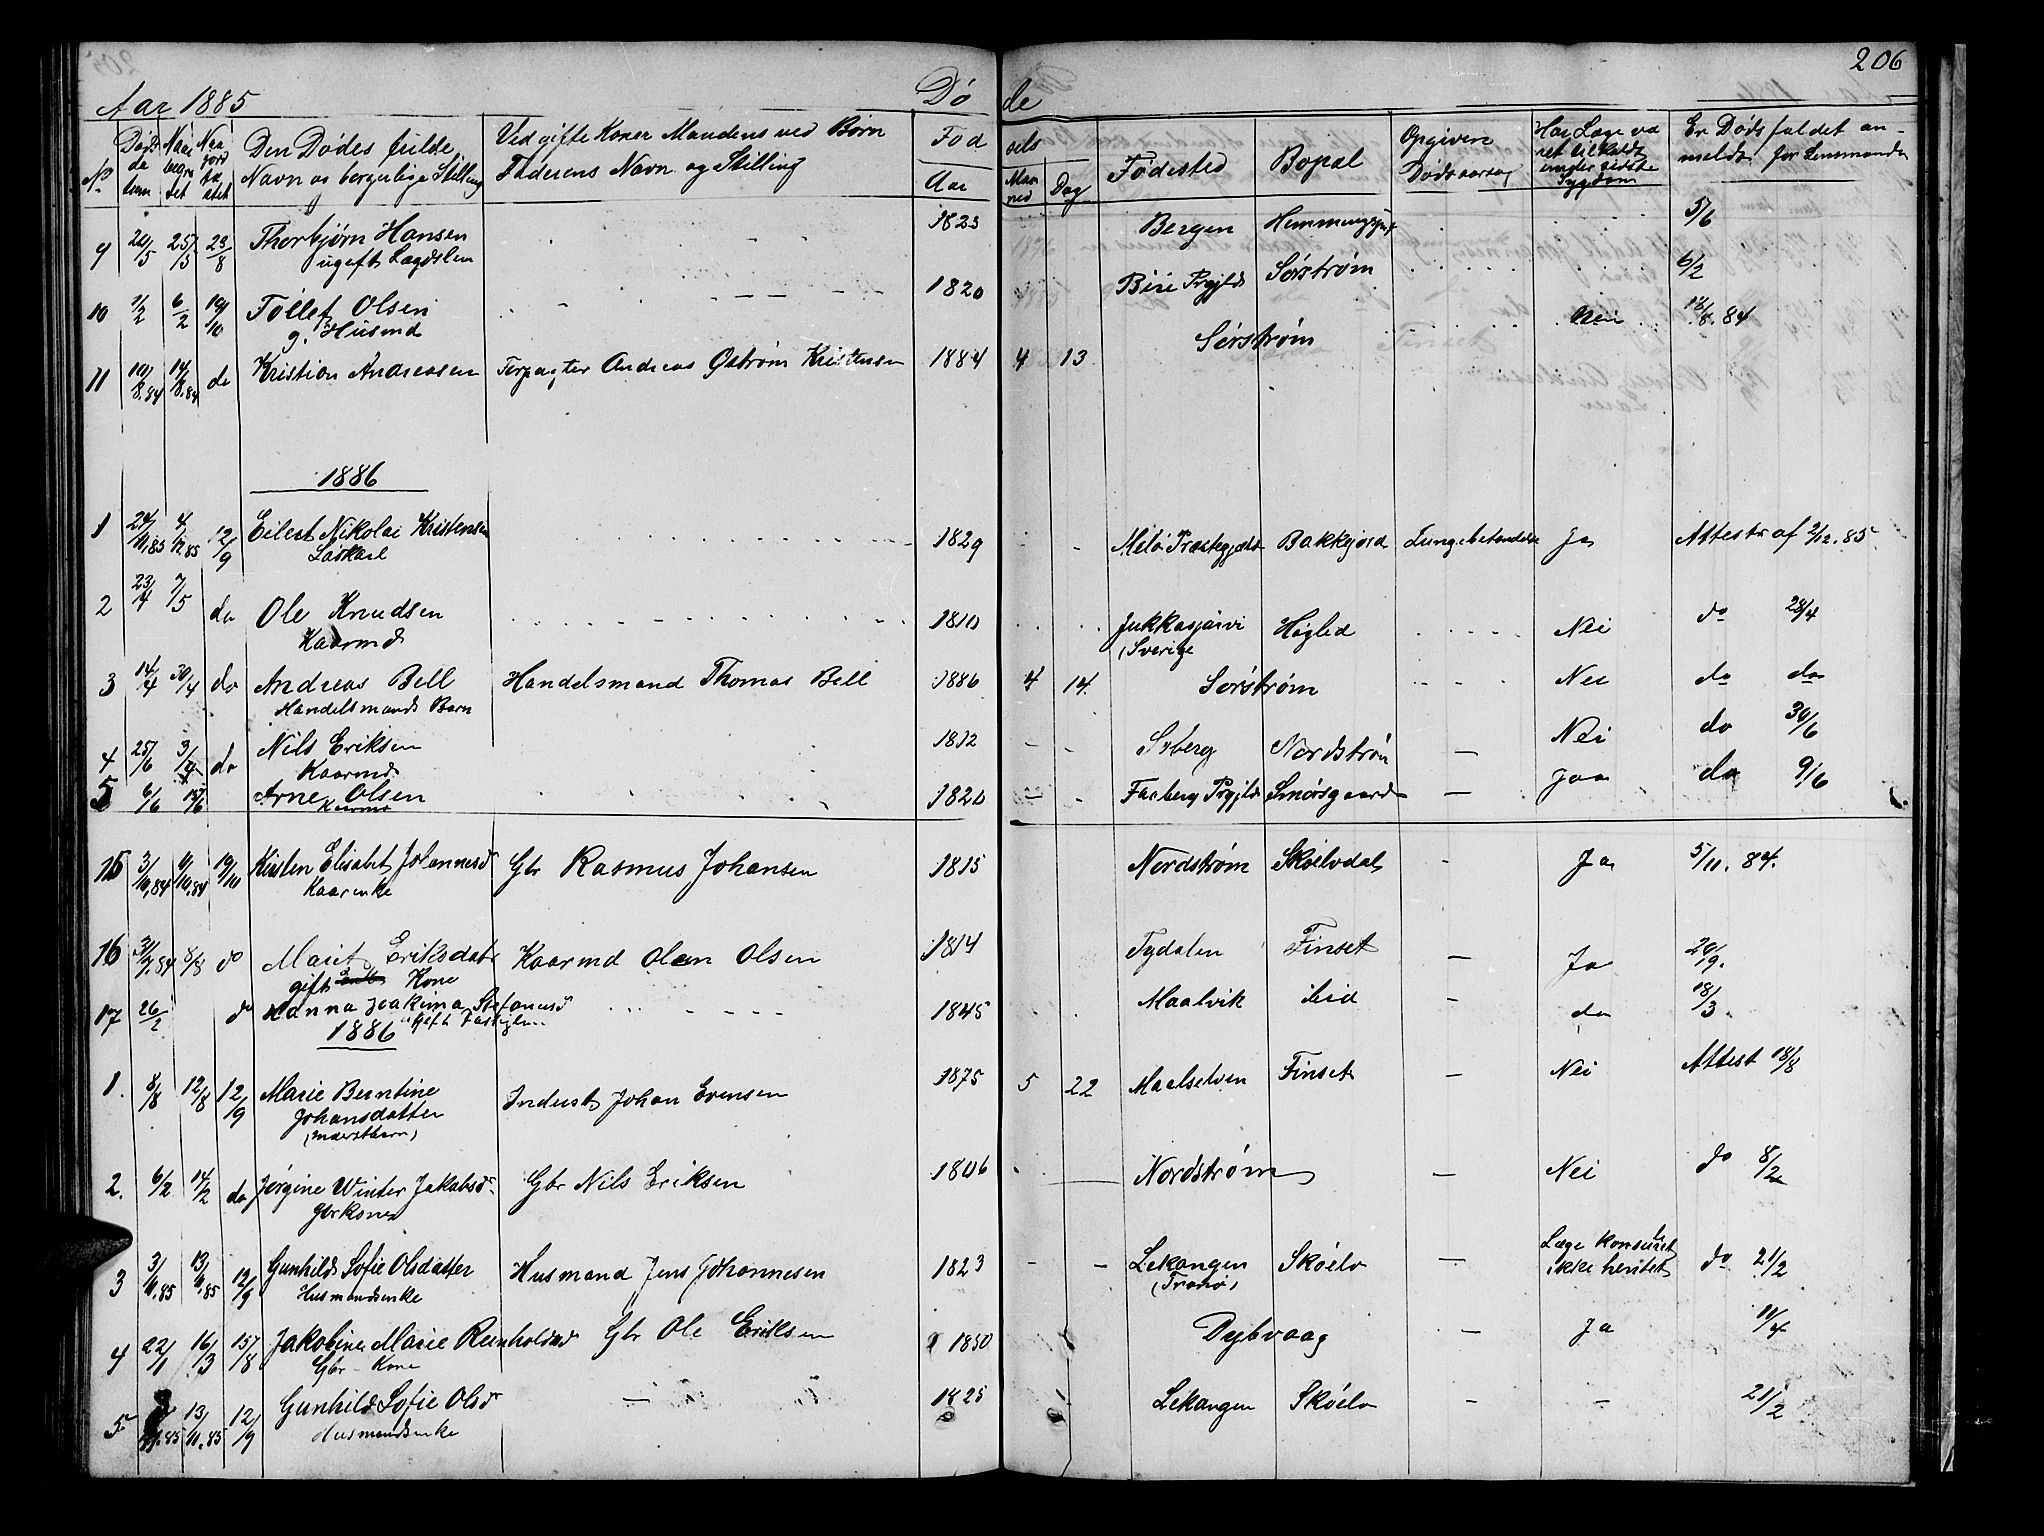 206
Aar 1885 Døde
No Døds datum Naar begravet Naar jordfæstet Den Dødes fulde Navn og borgerlige Stilling Ved gifte Koner Mandens ved Børn Faderens Navn og Stilling Fødsels Aar Maaned Dag Fødested Bopæl Opgiven Dødsaarsag Har Læge været tilkaldt under sidste Sygdom Er Dødsfaldet anmeldt for Lensmanden
9 25/5 23/8 Thorbjørn Hansen 1823 Bergen 5/6
ugift Lægdslem
10 1/2 6/2 19/10 Tollef Olsen 1820 Prgjld Sørstrøm 6/2
g. Husmd
11 10/8.84 14/8.84 do Kristian Andreasen Forpagter Andreas Kristensen 1884 4 13 Sørstrøm Nei 18/8.84
1886
1 24/11.85 4/12.85 12/9 Eilert Nikolai Kristensen 1829 - - Melø Præstegjæld Bakkejord Lungebetændelse Ja Attest af 2/12.85
Løskarl
2 23/4 7/5 do Ole Knudsen 1810 Jukkasjarvi Høglid Nei do 28/4
Kaarmd (Sverige
3 14/4 30/4 do Andreas Bell Handelsmand Thomas Bell 1886 4 14 Sørstrøm Nei do do
Handelsmands Barn
4 25/6 do Nils Eriksen 1812 - - Nordstrøm - Nei do 30/6
Kaarmd
5 6/6 15/6 Arne Olsen 1820 - - Faaberg Prgjld Smørsgaard - Jaa do 9/6
Kaarmd
15 3/10.84 11/10.84 19/10 Kirsten Elisabet Johannesd Gbr Rasmus Johansen 1815 Nordstrøm Skøelvdal - Ja 5/11.84.
Kaarenke
16 31/7.84 8/8 do Marit Eriksdatr Kaarmd Olsen 1814 Tydalen Finset - Ja 20/9.
gift Kone
17 26/2 do Hanna Joakima Stefanusd 1845 Maalvik Lid - do 18/3.
Gift
1886
1. 8/8 12/8 12/9 Marie Berntine Inderst Johan Evensen 1875 5 22 Maalselven Finset - Nei Attest 18/8
Johansdatter
(Inderstbarn)
2. 6/2 14/2 do Jørgine Winter Jakobsdr Gbr Nils Eriksen 1806 Nordstrøm - Nei do 8/2
Gbrkone
3 3/11.85 13/11.85 12/9 Gunhild Sofie Olsdatter Husmand Jens Johannesen 1823 - - Lekangen Skøelv - Læge konsulteret ikke hentet do 21/2
Husmandsenke (Tranø)
4 22/1 16/3 15/8 Jakobine Marie Reinholdsd Gbr Ole Eriksen 1850 Dybvaag - Ja 11/4
Gbr - Kone
5 13/11.85 12/9 Gunhild Sofie Olsd - 1825 Lekangen Skøelv - - 21/2
Husmandsenke